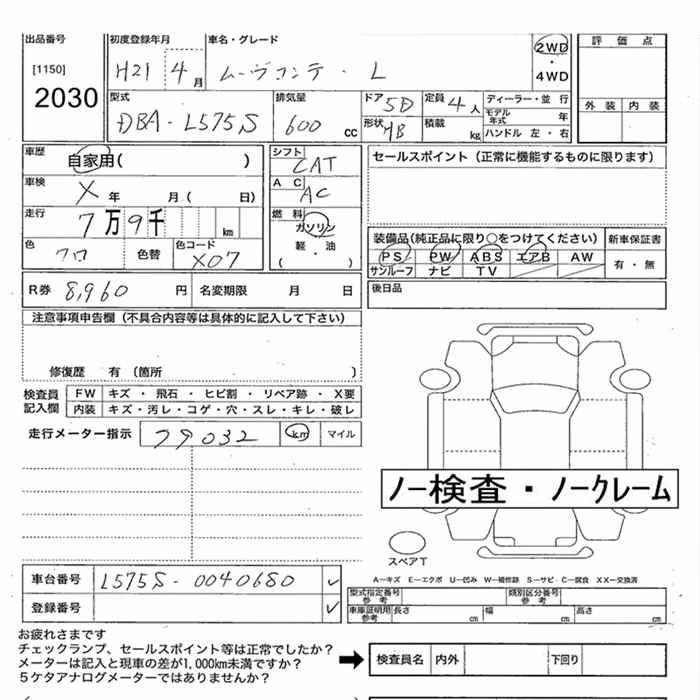 出品番号 初度登録年月 車名・グレード 評価点
[1150] H21 4月 ムーヴコンテ・L 2WD・4WD
2030 外装 内装
型式 排気量 ドア 5D 定員 4人 ディーラー・並行
DBA-L575S 600 cc 形状 HB 積載 kg モデル年式 年
ハンドル 左・右
車歴 自家用( ) シフト CAT セールスポイント(正常に機能するものに限ります)
車検 X年 月( 日) AC AC
走行 7万9千 km 燃料 ガソリン 軽・油 ( )
装備品(純正品に限り○をつけてください) 新車保証書
色 クロ 色替 色コード X07 PS PW ABS エアB AW 有・無
サンルーフ ナビ TV
R券 8,960円 名変期限 月 日 後日品
注意事項申告欄(不具合内容等は具体的に記入して下さい)
修復歴 有(箇所 )
検査員記入欄 FW キズ・飛石・ヒビ割・リペア跡・X要
内装 キズ・汚レ・コゲ・穴・スレ・キレ・破レ
走行メーター指示 79032 km マイル
ノー検査・ノークレーム
スペアT
車台番号 L575S-0040680 ✓
A-キズ E-エクボ U-凹み W-補修跡 S-サビ C-腐食 XX-交換済
型式指定番号参考 類別区分番号参考
登録番号 ✓ 車庫証明用参考 長さ cm 幅 cm 高さ cm
お疲れさまです
チェックランプ、セールスポイント等は正常でしたか?
メーターは記入と現車の差が1,000km未満ですか?
5ケタアナログメーターではありませんか?
➡ 検査員名 内外 下回り